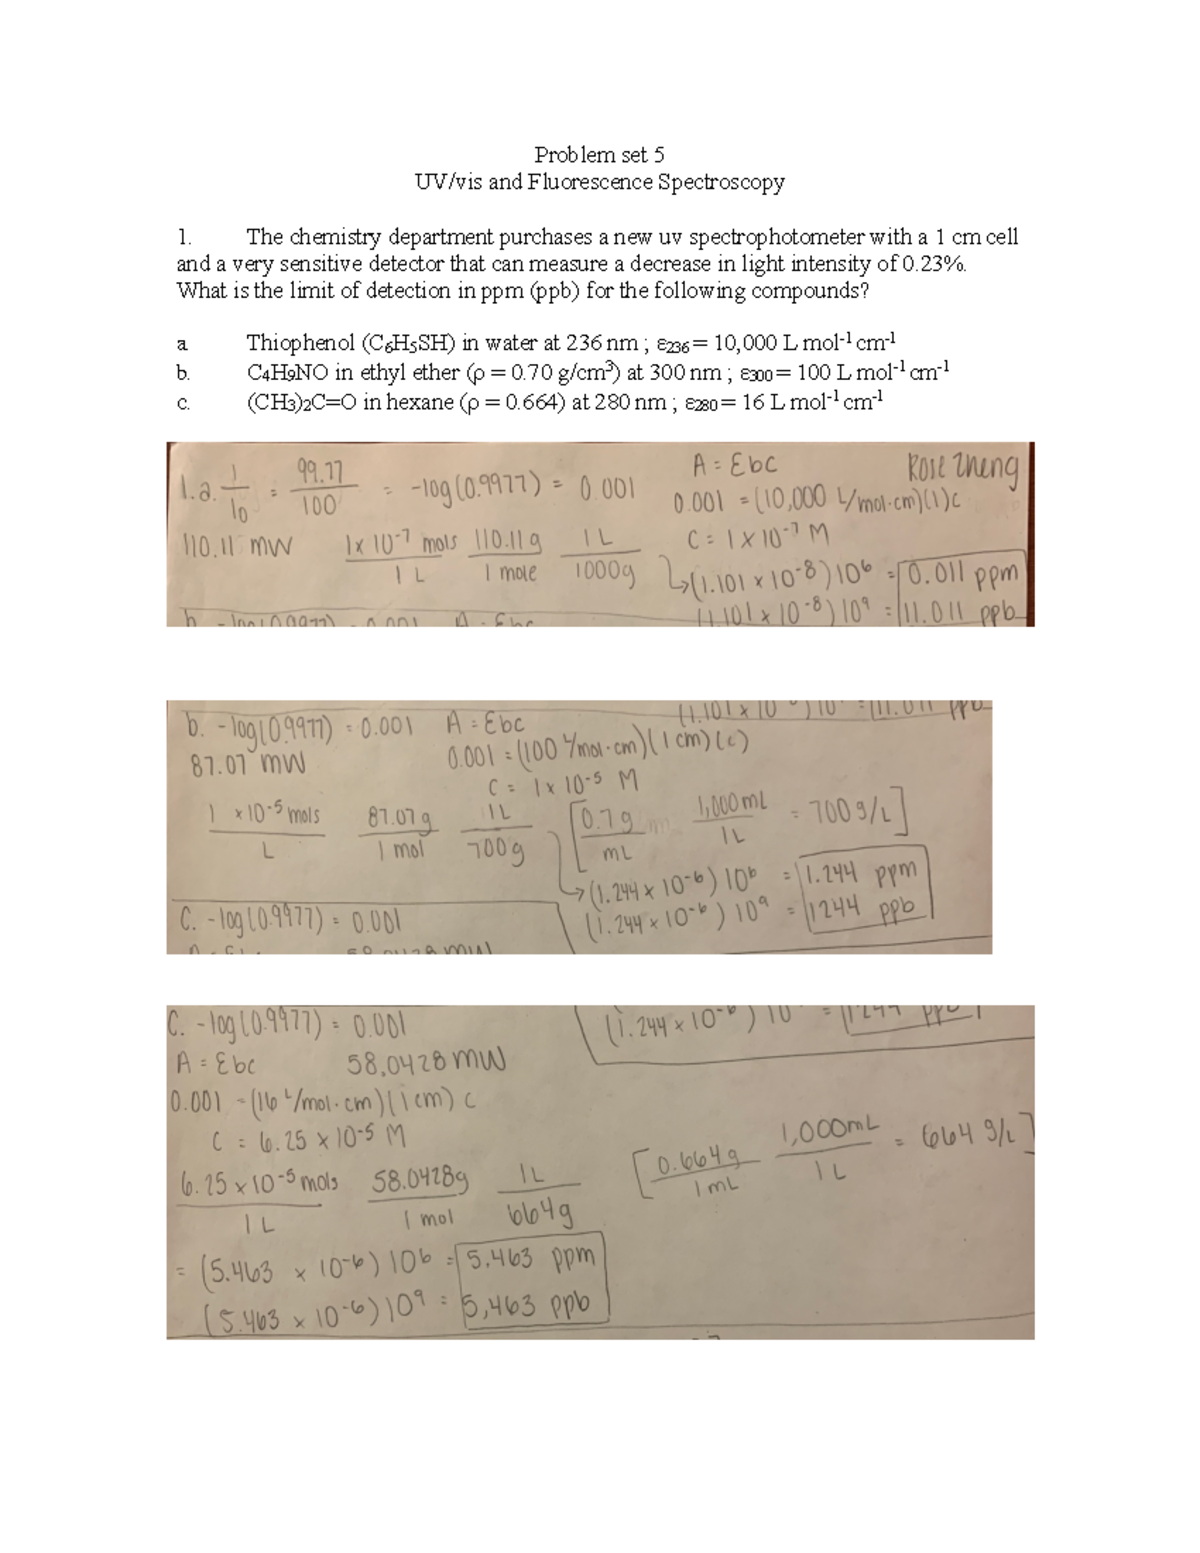 Problem set 5
UV/vis and Fluorescence Spectroscopy
1. The chemistry department purchases a new uv spectrophotometer with a 1 cm cell
and a very sensitive detector that can measure a decrease in light intensity of 0.23%.
What is the limit of detection in ppm (ppb) for the following compounds?
a Thiophenol (C6H5SH) in water at 236 nm ; ε236 = 10,000 L mol-1 cm-1
b. C4H9NO in ethyl ether (ρ = 0.70 g/cm3) at 300 nm ; ε300 = 100 L mol-1 cm-1
c. (CH3)2C=O in hexane (ρ = 0.664) at 280 nm ; ε280 = 16 L mol-1 cm-1
1.a. I/I0 = 99.77/100 = -log(0.9977) = 0.001 A = Ebc Rose Zheng
0.001 = (10,000 L/mol·cm)(1)c
C = 1 x 10-7 M
110.11 MW 1x 10-7 mols/1 L 110.11 g/1 mole 1 L/1000g
→(1.101 x 10-8)106 = 0.011 ppm
(1.101 x 10-8)109 = 11.011 ppb
b. -log(0.9977) = 0.001 A = Ebc
(1.101 x 10 )10 = 11.011 ppb
b. -log(0.9977) = 0.001 A = Ebc
87.07 MW 0.001 = (100 L/mol·cm)(1 cm)(c)
C = 1x 10-5 M
1 x10-5 mols/L 87.07g/1 mol 1L/700g [0.7g/mL 1,000mL/1L = 700g/L]
→(1.244 x 10-6) 106 = 1.244 ppm
(1.244 x 10-6) 109 = 1244 ppb
C. -log(0.9977) = 0.001
A = Ebc 58.0428 MW
C. -log(0.9977) = 0.001 (1.244 x 10-6) 10 = 1244 ppb
A = Ebc 58.0428 MW
0.001 = (16 L/mol·cm)(1cm) c
C = 6.25 x 10-5 M
6.25 x10-5 mols/1 L 58.0428g/1 mol 1L/664g [0.664g/1mL 1,000mL/1L = 664 g/L]
= (5.463 x 10-6) 106 = 5.463 ppm
(5.463 x 10-6)109 = 5,463 ppb